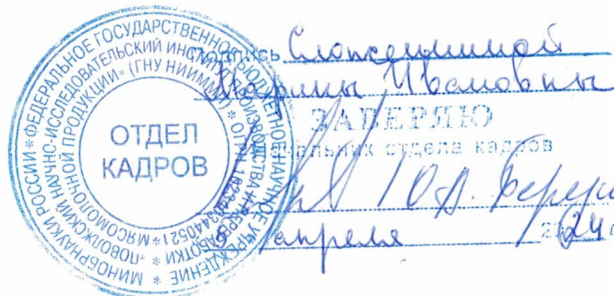 МИНОБРНАУКИ РОССИИ * ФЕДЕРАЛЬНОЕ ГОСУДАРСТВЕННОЕ БЮДЖЕТНОЕ НАУЧНОЕ УЧРЕЖДЕНИЕ *
"ПОВОЛЖСКИЙ НАУЧНО-ИССЛЕДОВАТЕЛЬСКИЙ ИНСТИТУТ ПРОИЗВОДСТВА И ПЕРЕРАБОТКИ
МЯСОМОЛОЧНОЙ ПРОДУКЦИИ" (ГНУ НИИММП) * ОГРН
ОТДЕЛ
КАДРОВ
подпись Сложенкиной
Марины Ивановны
ЗАВЕРЯЮ
начальник отдела кадров
Ю.А.
апреля 2024